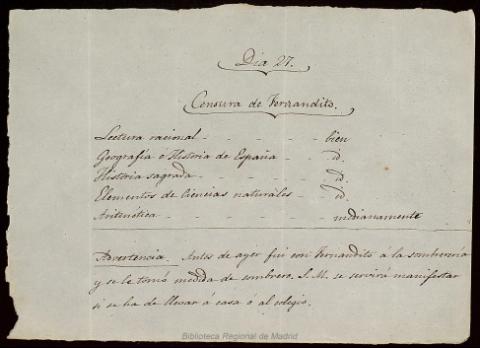 Dia 27.
Censura de Fernandito.
Lectura racional - - - - - bien
Geografía é Historia de España - - id.
Historia sagrada - - - - - id.
Elementos de ciencias naturales - - id.
Aritmética - - - - - - medianamente
Advertencia. Antes de ayer fui con Fernandito á la sombrerería
y se le tomó medida de sombrero. S. M. se servirá manifestar
si se ha de llevar á casa ó al colegio.
Biblioteca Regional de Madrid